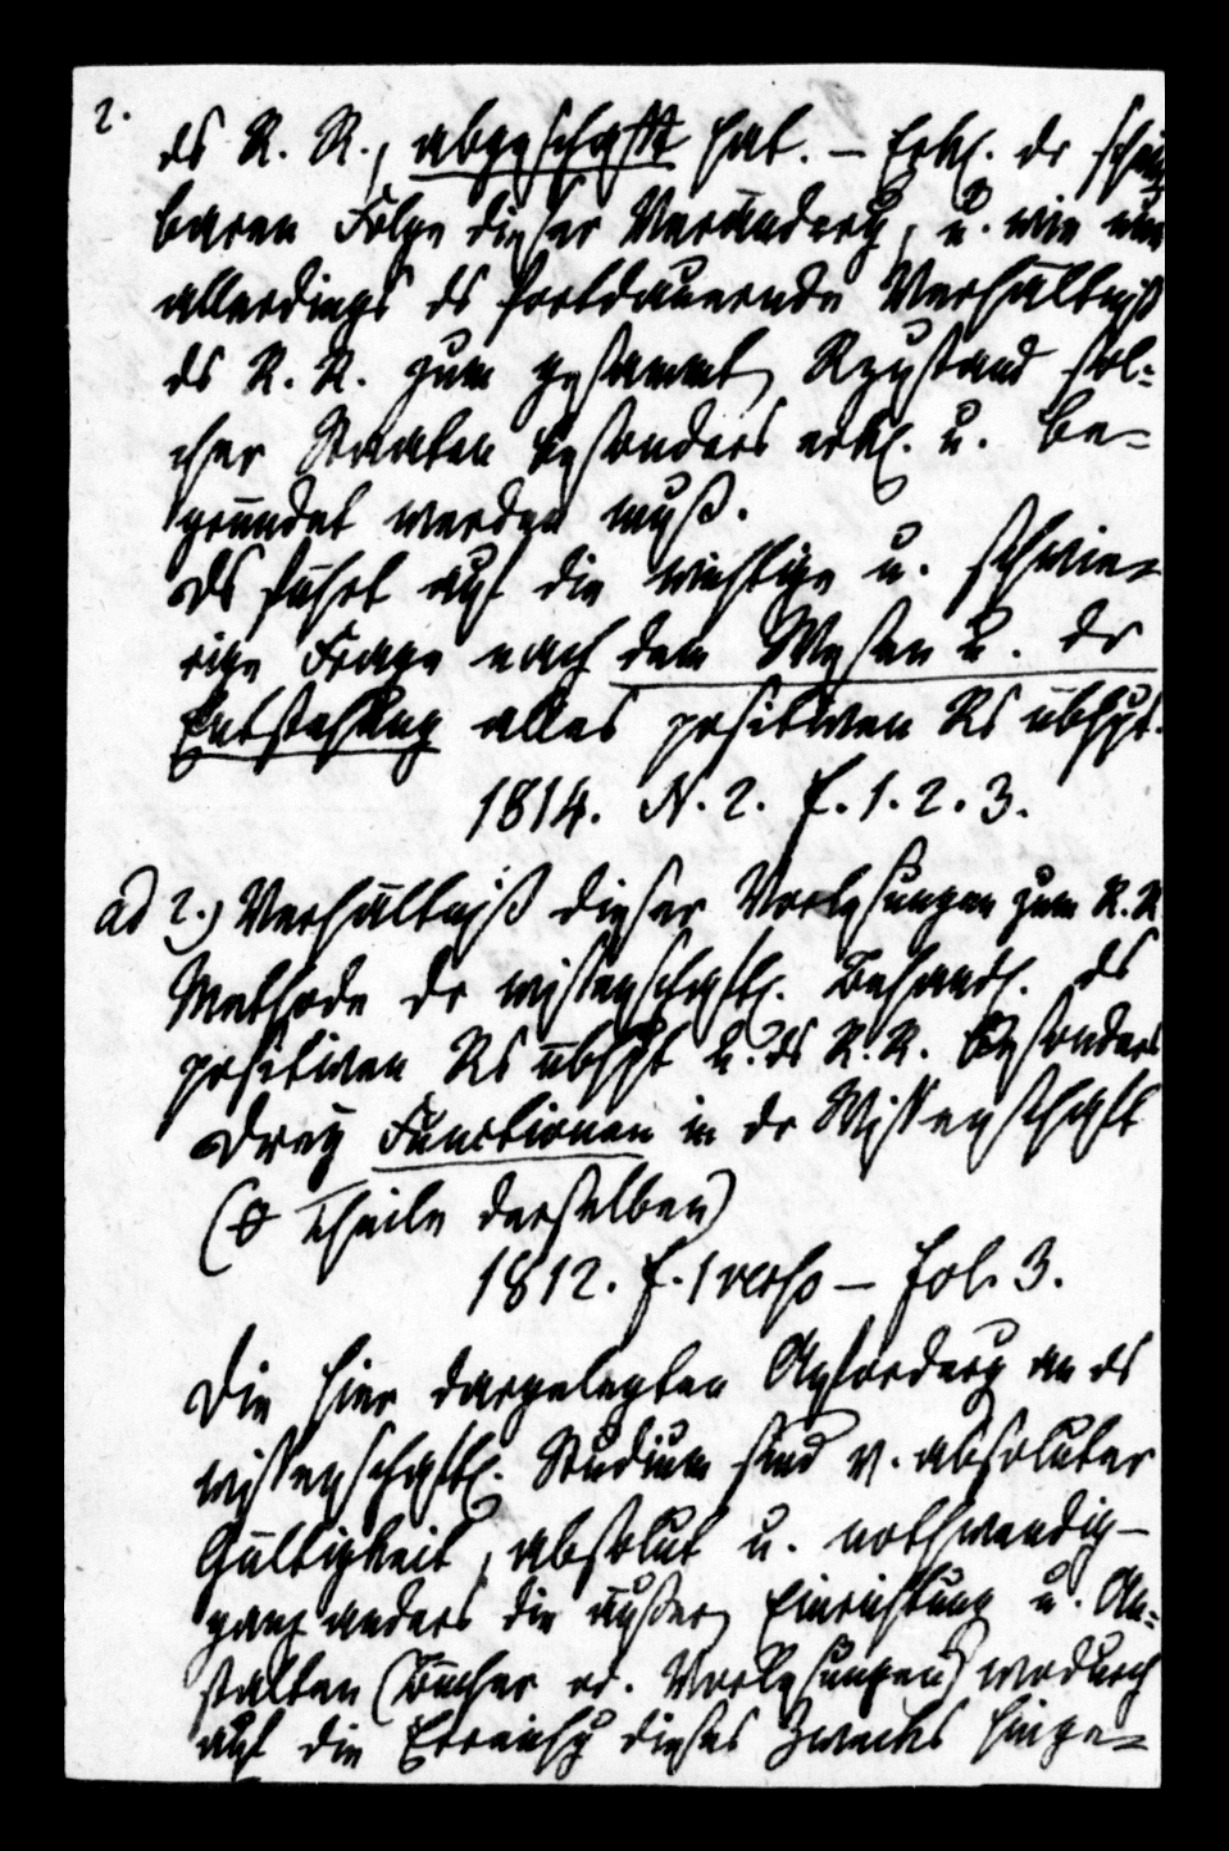 2.
ds R. R., abgeschafft hat. – Erkl. dr schein
baren Folge dieser Veränderg, u. wie nun
allerdings ds fortdauernde Verhältniß
ds R. R. zum gesammt Rzustand sol-
cher Staaten besonders erkl. u. be-
gründet werden muß.
Ds führt auf die wichtige u. schwie-
rige Frage nach dem Wesen u. dr
Entstehung alles positiven Rs übhpt.
1814. N. 2. f. 1. 2. 3.
ad 2.) Verhältniß dieser Vorlesungen zum R. R
Methode dr wissenschaftl. Behandl. ds
positiven Rs übhpt u. ds R. R. besonders
Drey Functionen in dr Wissenschaft
(0 Theile derselben)
1812. f. 1 verso – fol. 3.
Die hier dargelegten Anforderg an ds
wissenschaftl. Studium sind v. absoluter
Gültigkeit, absolut u. nothwendig –
ganz anders die äußern Einrichtung u. An-
stalten (Bücher od. Vorlesungen) wodurch
auf die Erreichg dieses Zwecks hinge-